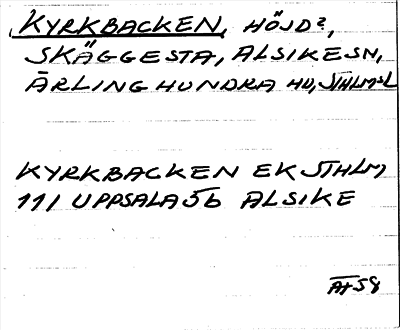 KYRKBACKEN, HÖJD?,
SKÄGGESTA, ALSIKE SN,
ÄRLINGHUNDRA HD, STHLMS L
KYRKBACKEN EK STHLM
111 UPPSALA 5b ALSIKE
AF 58